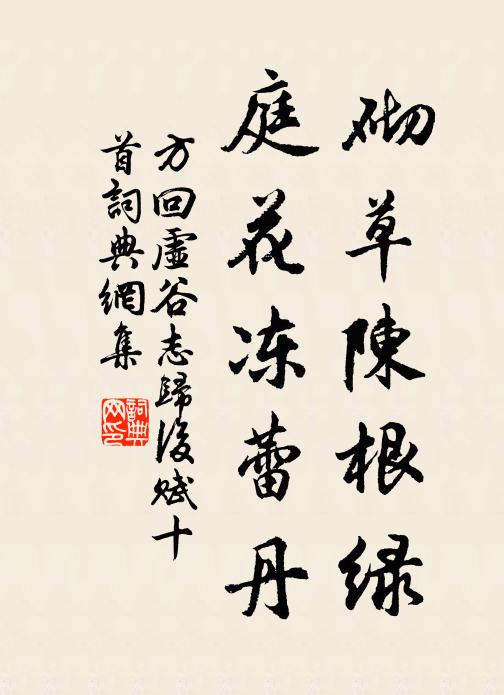 砌草陳根绿
庭花冻蕾丹
方回虛谷志歸後赋十
首詞典網集
詞典网印